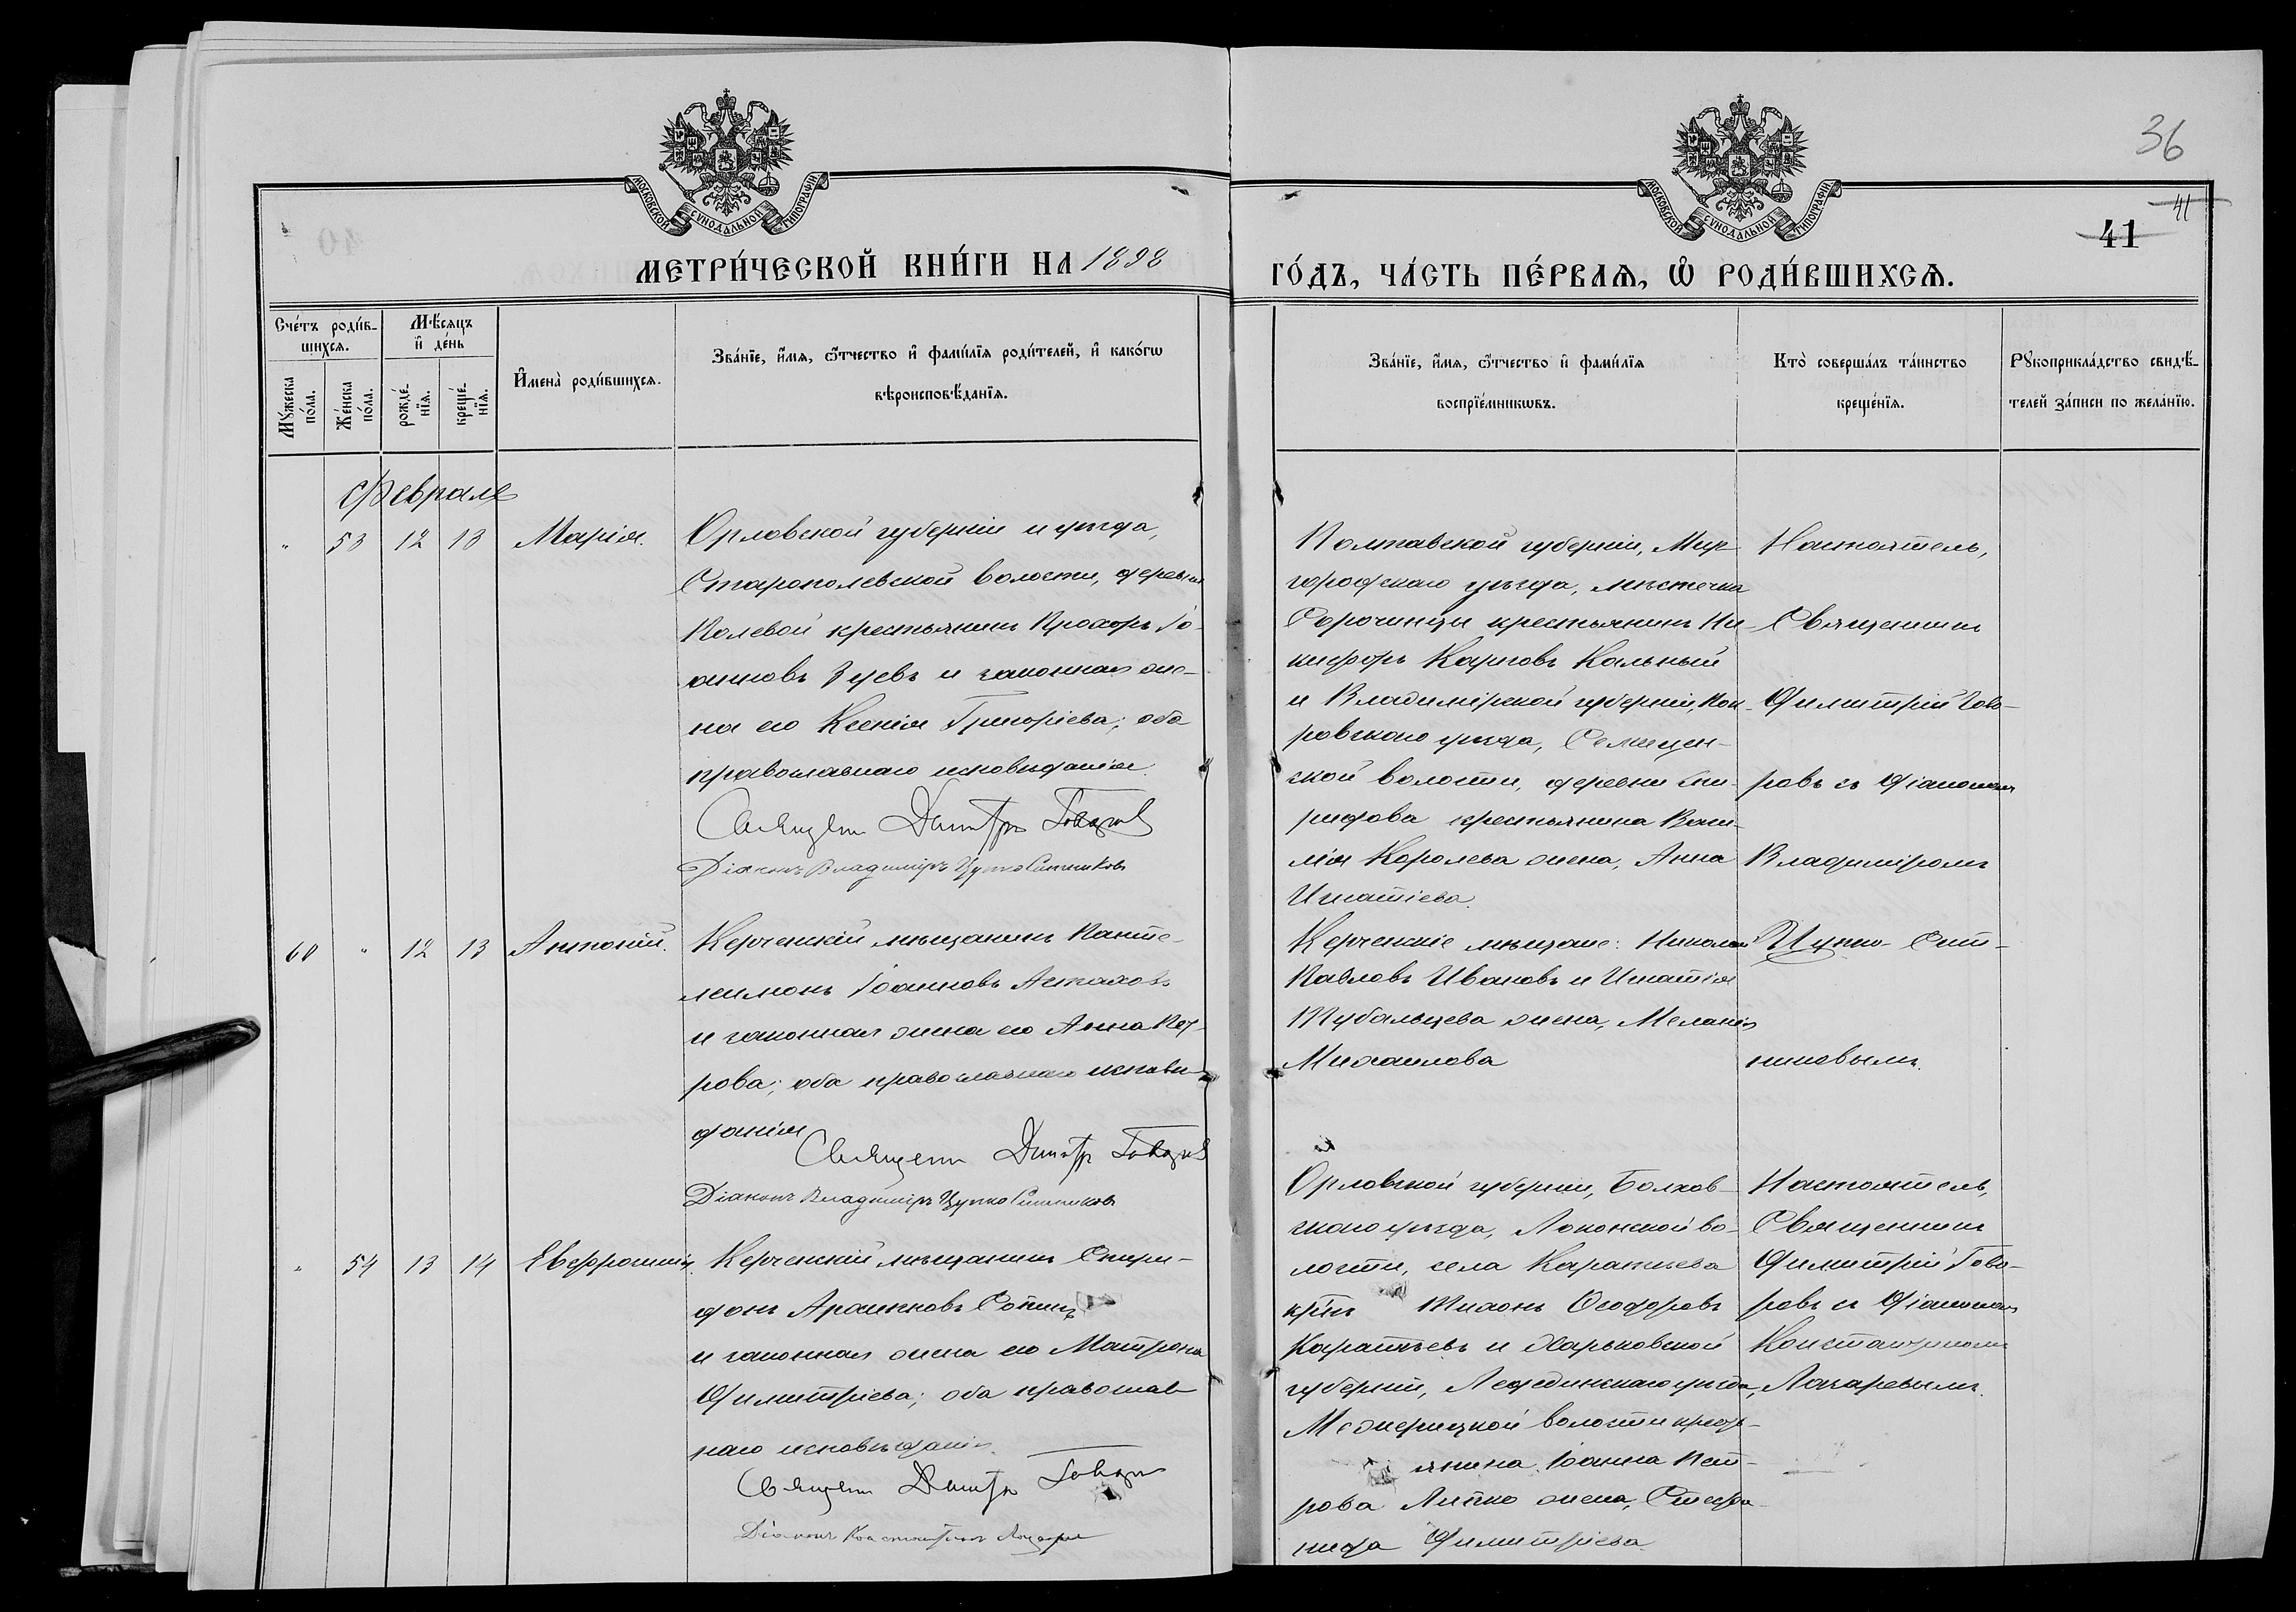 36
41
41
МОСКОВСКОЙ СѴНОДАЛЬНОЙ ТИПОГРАФІИ
МОСКОВСКОЙ СѴНОДАЛЬНОЙ ТИПОГРАФІИ
МЕТРИ́ЧЕСКОЙ КНИ́ГИ НА 1898
ГО́ДЪ, ЧА́СТЬ ПЕ́РВАѦ, Ѡ РОДИ́ВШИХСѦ.
Сче́тъ роди́в-
шихсѧ.
Мꙋжеска по́ла.
Же́нска по́ла.
Мѣ́сѧцъ
и҆ де́нь
рожде́-
нїѧ.
креще́-
нїѧ.
И҆мена̀ роди́вшихсѧ.
Зва́нїе, и҆́мѧ, ѻ҆́тчество и҆ фами́лїѧ роди́телей, и҆ како́гѡ
вѣроисповѣ́данїѧ.
Зва́нїе, и҆́мѧ, ѻ҆́тчество и҆ фами́лїѧ
воспрїе́мникѡвъ.
Кто̀ соверша́лъ та́инство
креще́нїѧ.
Рꙋкоприкла́дство свидѣ́-
телей за́писи по жела́нїю.
Февраль
" 53 12 13 Марія.
Орловской губерніи и уѣзда,
волости, деревни
Полевой крестьянинъ Прохоръ Іо-
анновъ Зуевъ и законная же-
на его Ксенія Григоріева; оба
православнаго исповѣданія.
Священ. Димитр. Говоровъ
Діаконъ Владиміръ Цупко Ситниковъ
Полтавской губерніи, Мир-
городскаго уѣзда, мѣстечка
Сорочинцы крестьянинъ Ни-
кифоръ Карповъ Кальный
и Владимірской губерніи, Ков-
ровскаго уѣзда,
ской волости, деревни Спи-
ридова крестьянина Васи-
лія Королева жена, Анна
Игнатіева.
Настоятель,
Священникъ
Димитрій Гово-
ровъ съ діакономъ
Владиміромъ
Цупко-Сит-
никовымъ.
60 " 12 13 Антоній.
Керченскій мѣщанинъ Панте-
леимонъ Іоанновъ Астаховъ
и законная жена его Анна Пет-
рова; оба православнаго исповѣ-
данія
Священ. Димитр. Говоровъ
Діаконъ Владиміръ Цупко Ситниковъ
Керченскіе мѣщане: Николай
Павловъ Ивановъ и Игнатія
жена, Меланія
Михаилова
" 54 13 14 Евфросинія.
Керченскій мѣщанинъ Спири-
донъ
и законная жена его Матрона
Димитріева; оба православ-
наго исповѣданія.
Священ. Димитр. Говоровъ
Діаконъ Константинъ Лазаревъ
Орловской губерніи, Болхов-
скаго уѣзда, во-
лости, села
Тихонъ Ѳеодоровъ
и Харьковской
губерніи, Лебединскаго уѣзда,
Межирицкой волости
янина Іоанна Пет-
рова Липко жена, Стефа-
нида Димитріева
Настоятель,
Священникъ
Димитрій Гово-
ровъ съ діакономъ
Константиномъ
Лазаревымъ.